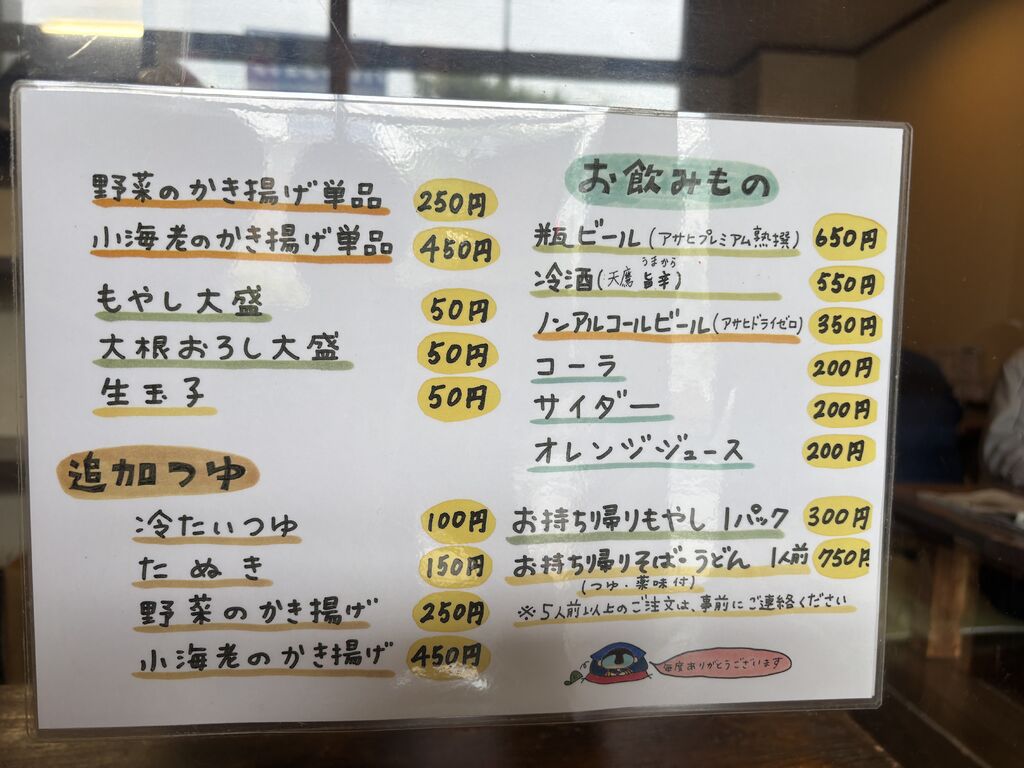 野菜のかき揚げ単品 250円
小海老のかき揚げ単品 450円
もやし大盛 50円
大根おろし大盛 50円
生玉子 50円
追加つゆ
冷たいつゆ 100円
たぬき 150円
野菜のかき揚げ 250円
小海老のかき揚げ 450円
お飲みもの
瓶ビール(アサヒプレミアム熟撰) 650円
うまから
冷酒(天鷹 旨辛) 550円
ノンアルコールビール(アサヒドライゼロ) 350円
コーラ 200円
サイダー 200円
オレンジジュース 200円
お持ち帰りもやし 1パック 300円
お持ち帰りそば・うどん 1人前 750円
(つゆ・薬味付)
※5人前以上のご注文は、事前にご連絡ください
毎度ありがとうございます